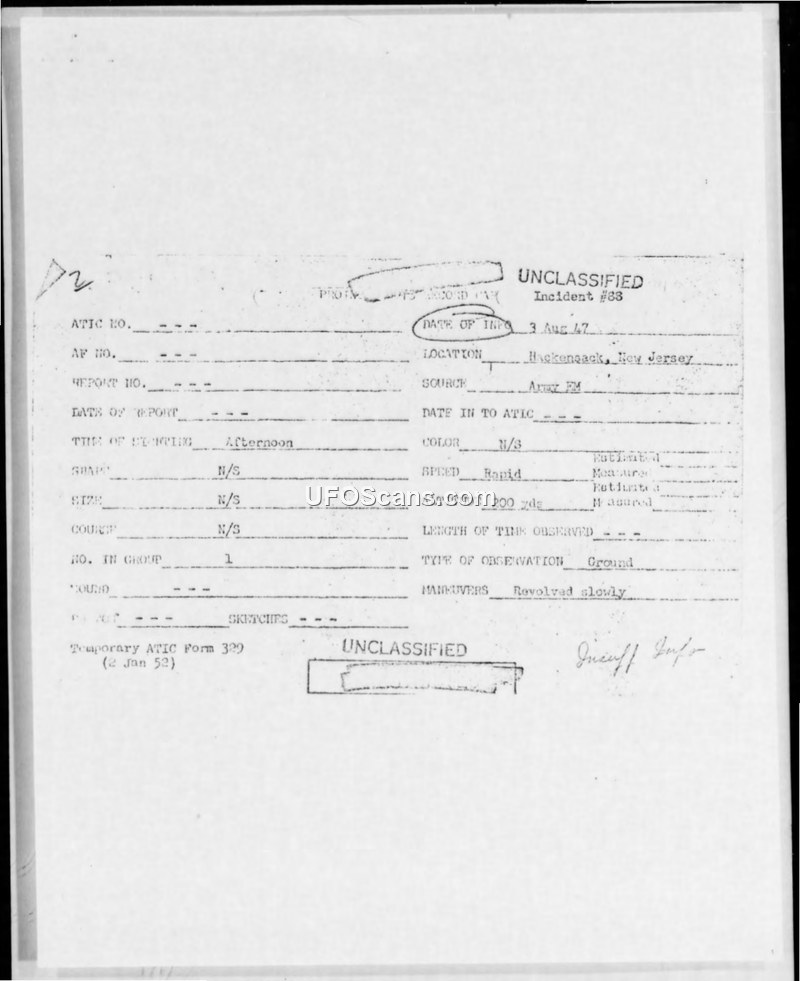 UNCLASSIFIED
Incident #88
ATIC NO. - - - DATE OF INFO 3 Aug 47
AF NO. - - - LOCATION Hackensack, New Jersey
REPORT NO. - - - SOURCE Army EM
DATE OF REPORT - - - DATE IN TO ATIC - - -
TIME OF SIGHTING Afternoon COLOR N/S
SHAPE N/S SPEED Rapid Estimated Measured
SIZE N/S 200 yds Estimated Measured
COURSE N/S LENGTH OF TIME OBSERVED - - -
NO. IN GROUP 1 TYPE OF OBSERVATION Ground
SOUND - - - MANEUVERS Revolved slowly
- - - SKETCHES - - -
Temporary ATIC Form 329
(2 Jan 52)
UNCLASSIFIED
Insuff Info
UFOScans.com